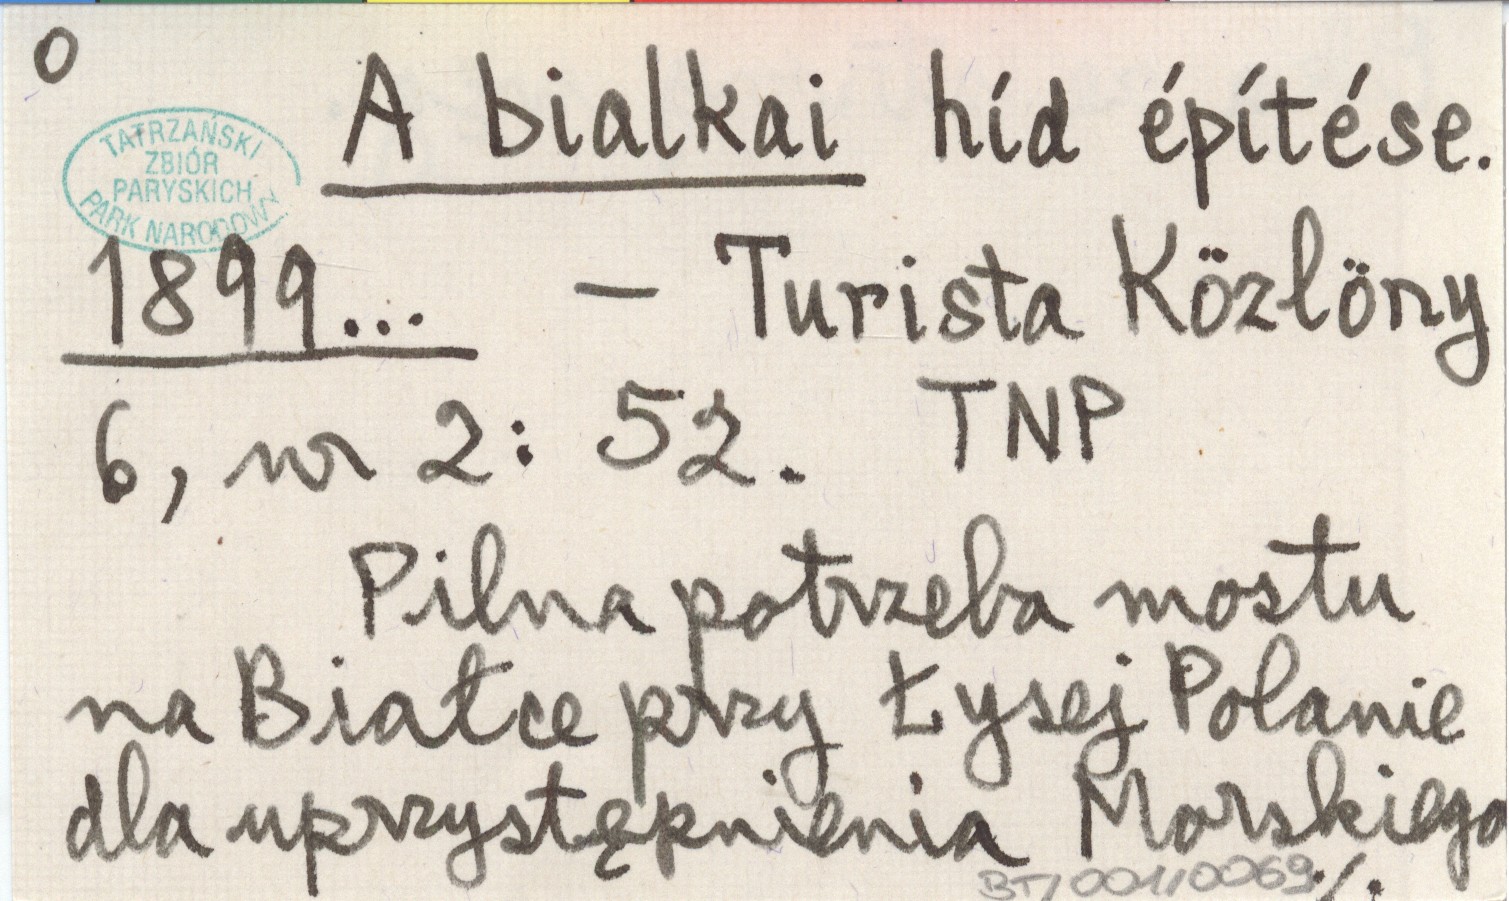 O
A bialkai híd építése.
TATRZAŃSKI
ZBIÓR
PARYSKICH
PARK NARODOWY
1899... – Turista Közlöny
6, nr 2: 52. TNP
Pilna potrzeba mostu
na Białce przy Łysej Polanie
dla uprzystępnienia Morskiego
BT/001/0069 ./.